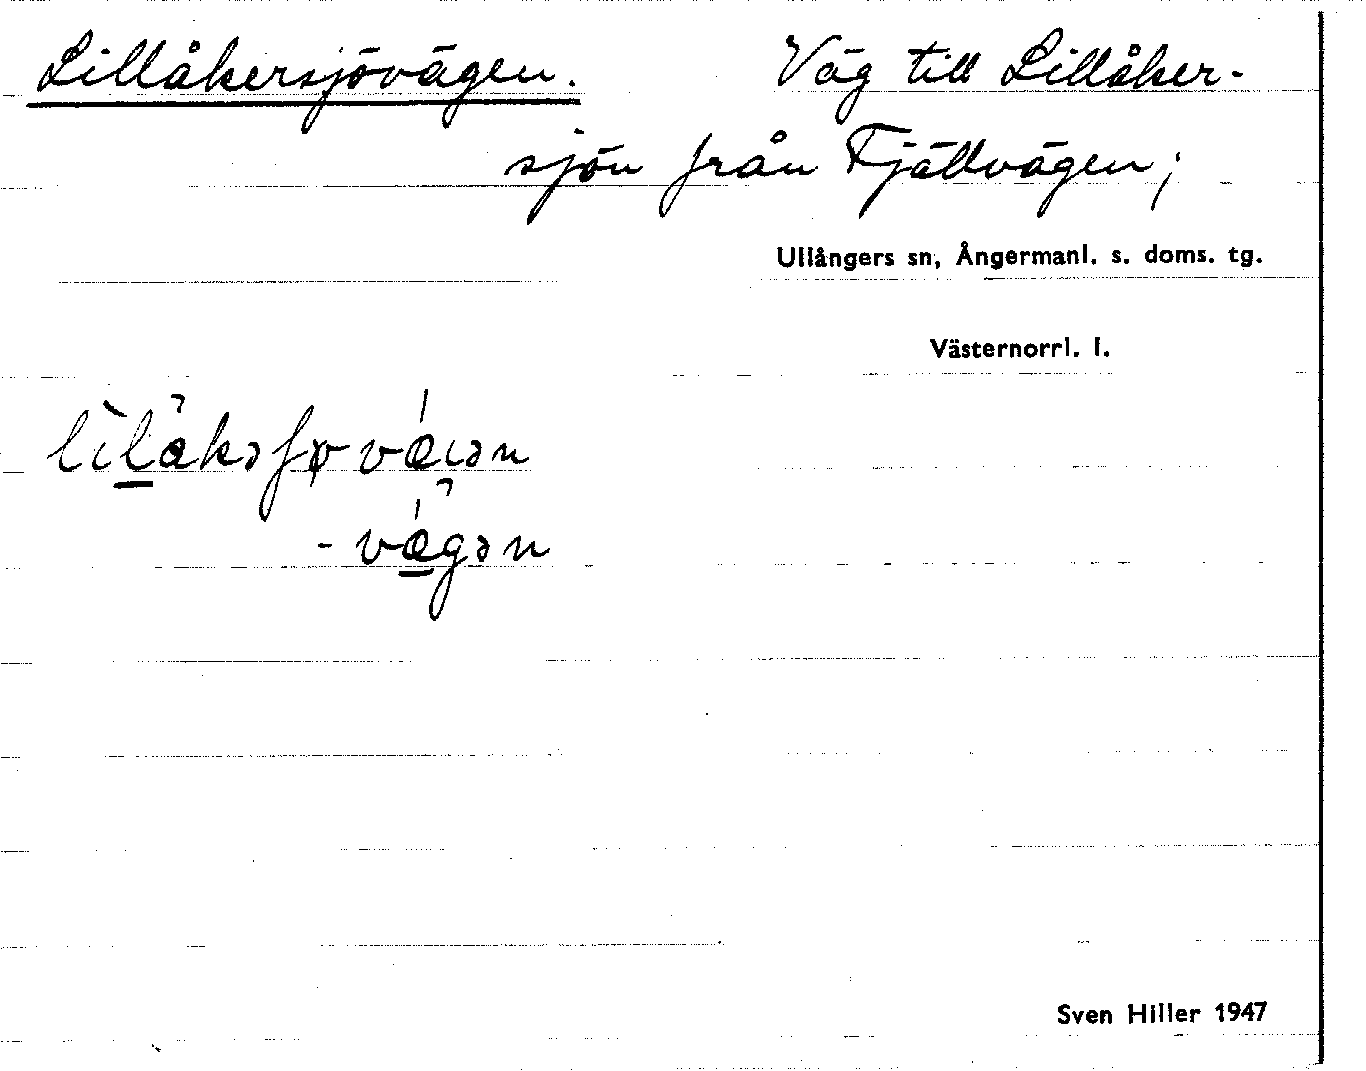 Lillåkersjövägen. Väg till Lillåker-
sjön från Fjällvägen;
Ullångers sn, Ångermanl. s. doms. tg.
Västernorrl. l.
-vǽgən
Sven Hiller 1947